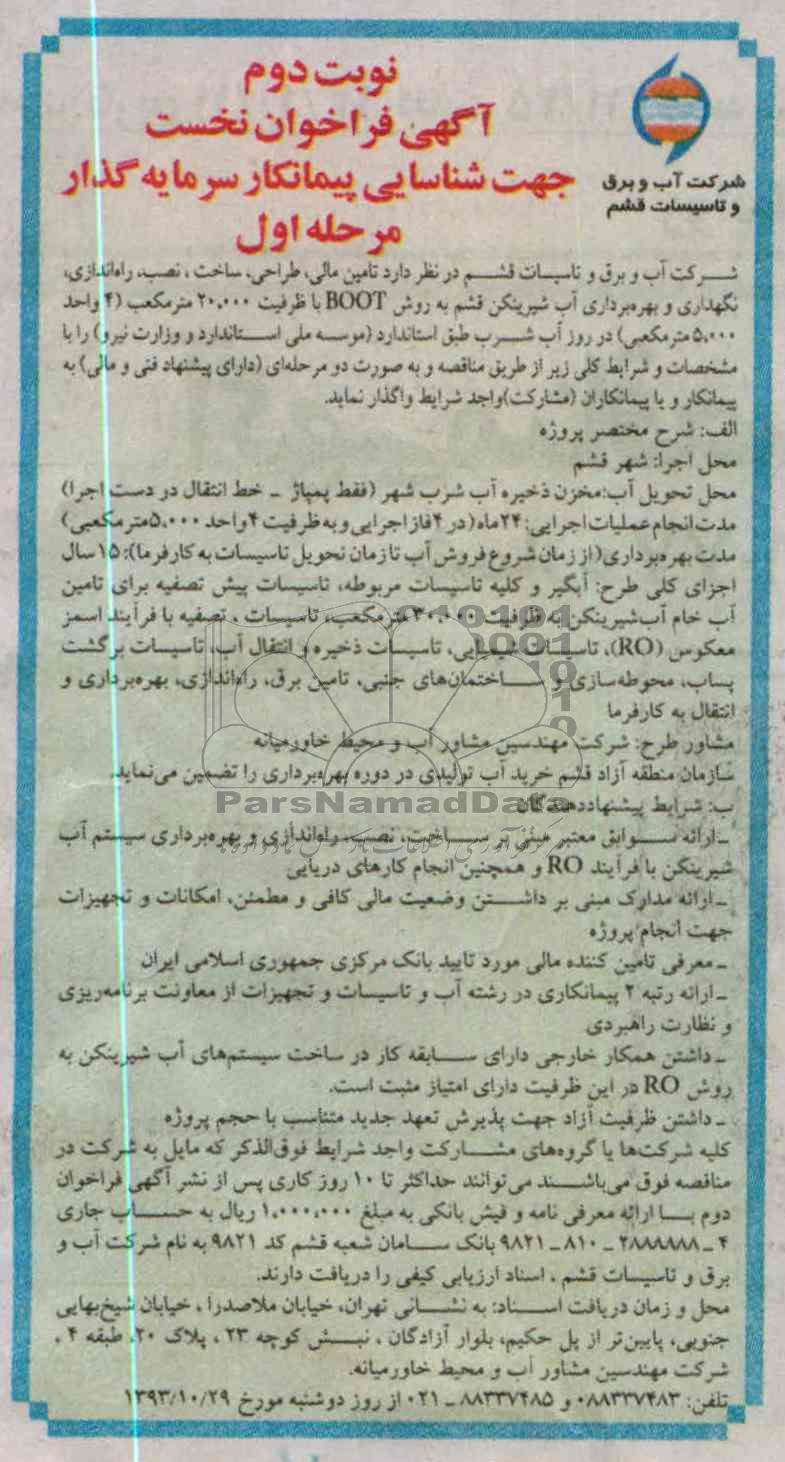 نوبت دوم
آگهی فراخوان نخست
جهت شناسایی پیمانکار سرمایه گذار
مرحله اول
شرکت آب و برق
و تاسیسات قشم
شرکت آب و برق و تاسیسات قشم در نظر دارد تامین مالی، طراحی، ساخت، نصب، راه‌اندازی،
نگهداری و بهره‌برداری آب شیرینکن قشم به روش BOOT با ظرفیت ۲۰،۰۰۰ مترمکعب (۴ واحد
۵،۰۰۰ مترمکعبی) در روز آب شرب طبق استاندارد (موسسه ملی استاندارد و وزارت نیرو) را با
مشخصات و شرایط کلی زیر از طریق مناقصه و به صورت دو مرحله‌ای (دارای پیشنهاد فنی و مالی) به
پیمانکار و یا پیمانکاران (مشارکت) واجد شرایط واگذار نماید.
الف: شرح مختصر پروژه
محل اجرا: شهر قشم
محل تحویل آب: مخزن ذخیره آب شرب شهر (فقط پمپاژ - خط انتقال در دست اجرا)
مدت انجام عملیات اجرایی: ۲۴ ماه (در ۴ فاز اجرایی و به ظرفیت ۴ واحد ۵،۰۰۰ مترمکعبی)
مدت بهره‌برداری (از زمان شروع فروش آب تا زمان تحویل تاسیسات به کارفرما): ۱۵ سال
اجزای کلی طرح: آبگیر و کلیه تاسیسات مربوطه، تاسیسات پیش تصفیه برای تامین
آب خام آب‌شیرینکن به ظرفیت ۳۰،۰۰۰ مترمکعب، تاسیسات، تصفیه با فرآیند اسمز
معکوس (RO)، تاسیسات شیمیایی، تاسیسات ذخیره و انتقال آب، تاسیسات برگشت
پساب، محوطه‌سازی و ساختمان‌های جنبی، تامین برق، راه‌اندازی، بهره‌برداری و
انتقال به کارفرما
مشاور طرح: شرکت مهندسین مشاور آب و محیط خاورمیانه
سازمان منطقه آزاد قشم خرید آب تولیدی در دوره بهره‌برداری را تضمین می‌نماید.
ParsNamadData
ب: شرایط پیشنهاددهندگان
ـ ارائه سوابق معتبر مبنی بر ساخت، نصب، راه‌اندازی و بهره‌برداری سیستم آب
شیرینکن با فرآیند RO و همچنین انجام کارهای دریایی
ـ ارائه مدارک مبنی بر داشتن وضعیت مالی کافی و مطمئن، امکانات و تجهیزات
جهت انجام پروژه
ـ معرفی تامین کننده مالی مورد تایید بانک مرکزی جمهوری اسلامی ایران
ـ ارائه رتبه ۲ پیمانکاری در رشته آب و تاسیسات و تجهیزات از معاونت برنامه‌ریزی
و نظارت راهبردی
ـ داشتن همکار خارجی دارای سابقه کار در ساخت سیستم‌های آب شیرینکن به
روش RO در این ظرفیت دارای امتیاز مثبت است.
ـ داشتن ظرفیت آزاد جهت پذیرش تعهد جدید متناسب با حجم پروژه
کلیه شرکت‌ها یا گروه‌های مشارکت واجد شرایط فوق‌الذکر که مایل به شرکت در
مناقصه فوق می‌باشند می‌توانند حداکثر تا ۱۰ روز کاری پس از نشر آگهی فراخوان
دوم با ارائه معرفی نامه و فیش بانکی به مبلغ ۱،۰۰۰،۰۰۰ ریال به حساب جاری
۴ـ۲۸۸۸۸۸۸ـ۸۱۰ـ۹۸۲۱ بانک سامان شعبه قشم کد ۹۸۲۱ به نام شرکت آب و
برق و تاسیسات قشم، اسناد ارزیابی کیفی را دریافت دارند.
محل و زمان دریافت اسناد: به نشانی تهران، خیابان ملاصدرا، خیابان شیخ‌بهایی
جنوبی، پایین‌تر از پل حکیم، بلوار آزادگان، نبش کوچه ۲۳، پلاک ۲۰، طبقه ۴،
شرکت مهندسین مشاور آب و محیط خاورمیانه.
تلفن: ۰۸۸۳۳۷۴۸۳ و ۸۸۳۳۷۴۸۵ ـ ۰۲۱ از روز دوشنبه مورخ ۱۳۹۳/۱۰/۲۹